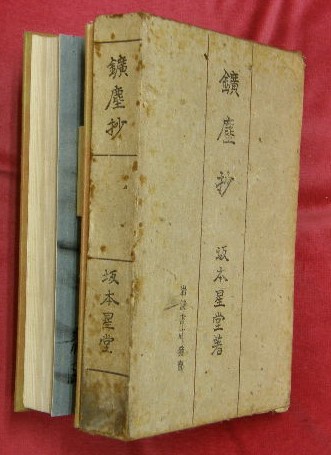 鑛塵抄
坂本星堂著
鑛塵抄
坂本星堂